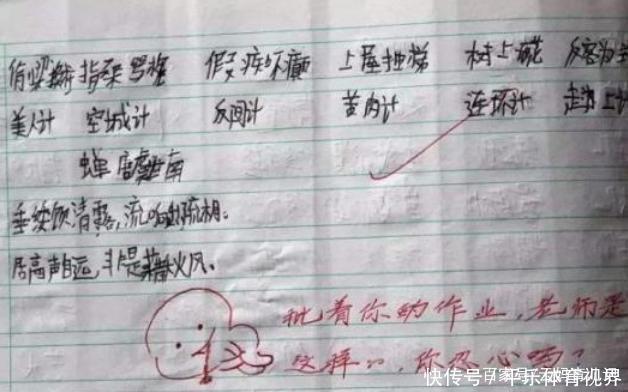 偷梁换柱 指桑骂槐 假痴不癫 上屋抽梯 树上开花 反客为主
美人计 空城计 反间计 苦肉计 连环计 走为上计
蝉 虞世南
垂緌饮清露,流响出疏桐。
居高声自远,非是藉秋风。
批着你的作业,老师是
这样的,你忍心吗?
快传号/平乐体育视界